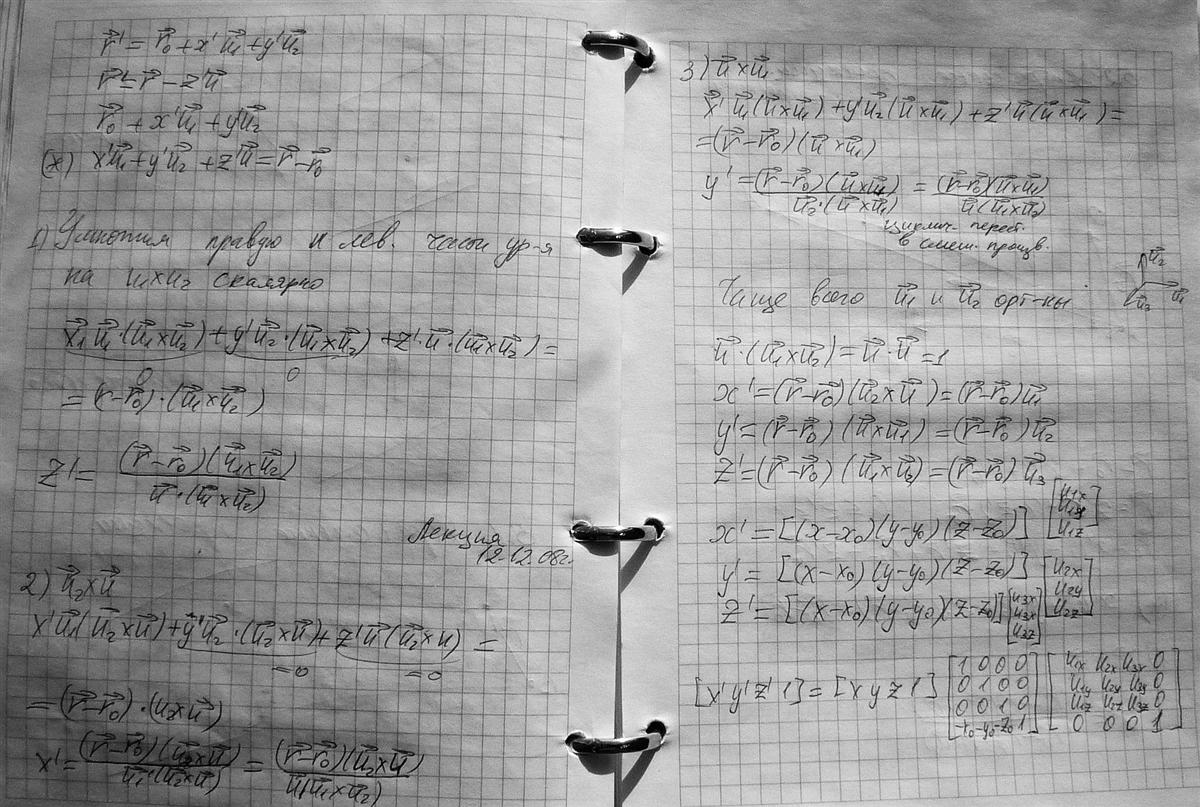 r⃗' = r⃗₀ + x'u⃗₁ + y'u⃗₂
r⃗' = r⃗ − z'u⃗
r⃗₀ + x'u⃗₁ + y'u⃗₂
(x) x'u⃗₁ + y'u⃗₂ + z'u⃗ = r⃗ − r⃗₀
1) Умножим правую и лев. части ур-я
на u₁×u₂ скалярно
x⃗₁u⃗₁·(u⃗₁×u⃗₂) + y'u⃗₂·(u⃗₁×u⃗₂) + z'·u⃗·(u⃗₁×u⃗₂) =
0 0
= (r−r⃗₀)·(u⃗₁×u⃗₂)
z' = (r⃗−r⃗₀)(u⃗₁×u⃗₂) / u⃗·(u⃗₁×u⃗₂)
Лекция
12.12.08г.
2) u⃗₂×u⃗
x'u⃗₁(u⃗₂×u⃗) + y'u⃗₂·(u⃗₂×u⃗) + z'u⃗(u⃗₂×u) =
=0 =0
= (r⃗−r⃗₀)·(u₂×u⃗)
x' = (r⃗−r⃗₀)(u₂×u⃗) / u⃗₁·(u⃗₂×u⃗) = (r⃗−r⃗₀)(u⃗₂×u⃗) / u⃗(u⃗₁×u⃗₂)
3) u⃗×u⃗₁
x⃗'u⃗₁(u⃗×u⃗₁) + y'u⃗₂(u⃗×u⃗₁) + z'u⃗(u⃗×u⃗₁) =
= (r⃗−r⃗₀)(u⃗×u⃗₁)
y' = (r⃗−r⃗₀)(u⃗×u⃗₁) / u⃗₂·(u⃗×u⃗₁) = (r⃗−r⃗₀)(u⃗×u⃗₁) / u⃗(u⃗₁×u⃗₂)
циклич. перест.
в смеш. произв.
Чаще всего u⃗₁ и u⃗₂ орт-ны
u⃗₂
u⃗₃ u⃗₁
u⃗·(u⃗₁×u⃗₂) = u⃗·u⃗ = 1
x' = (r⃗−r⃗₀)(u⃗₂×u⃗) = (r⃗−r⃗₀)u⃗₁
y' = (r⃗−r⃗₀)(u⃗×u⃗₁) = (r⃗−r⃗₀)u⃗₂
z' = (r⃗−r⃗₀)(u⃗₁×u⃗₃) = (r⃗−r⃗₀)u⃗₃
x' = [(x−x₀)(y−y₀)(z−z₀)] [u₁x u₁y u₁z]
y' = [(x−x₀)(y−y₀)(z−z₀)] [u₂x u₂y u₂z]
z' = [(x−x₀)(y−y₀)(z−z₀)] [u₃x u₃x u₃z]
[x' y' z' 1] = [x y z 1] [1 0 0 0 [u₁x u₂x u₃x 0
0 1 0 0 u₁y u₂y u₃y 0
0 0 1 0 u₁z u₂z u₃z 0
−x₀ −y₀ −z₀ 1] 0 0 0 1]